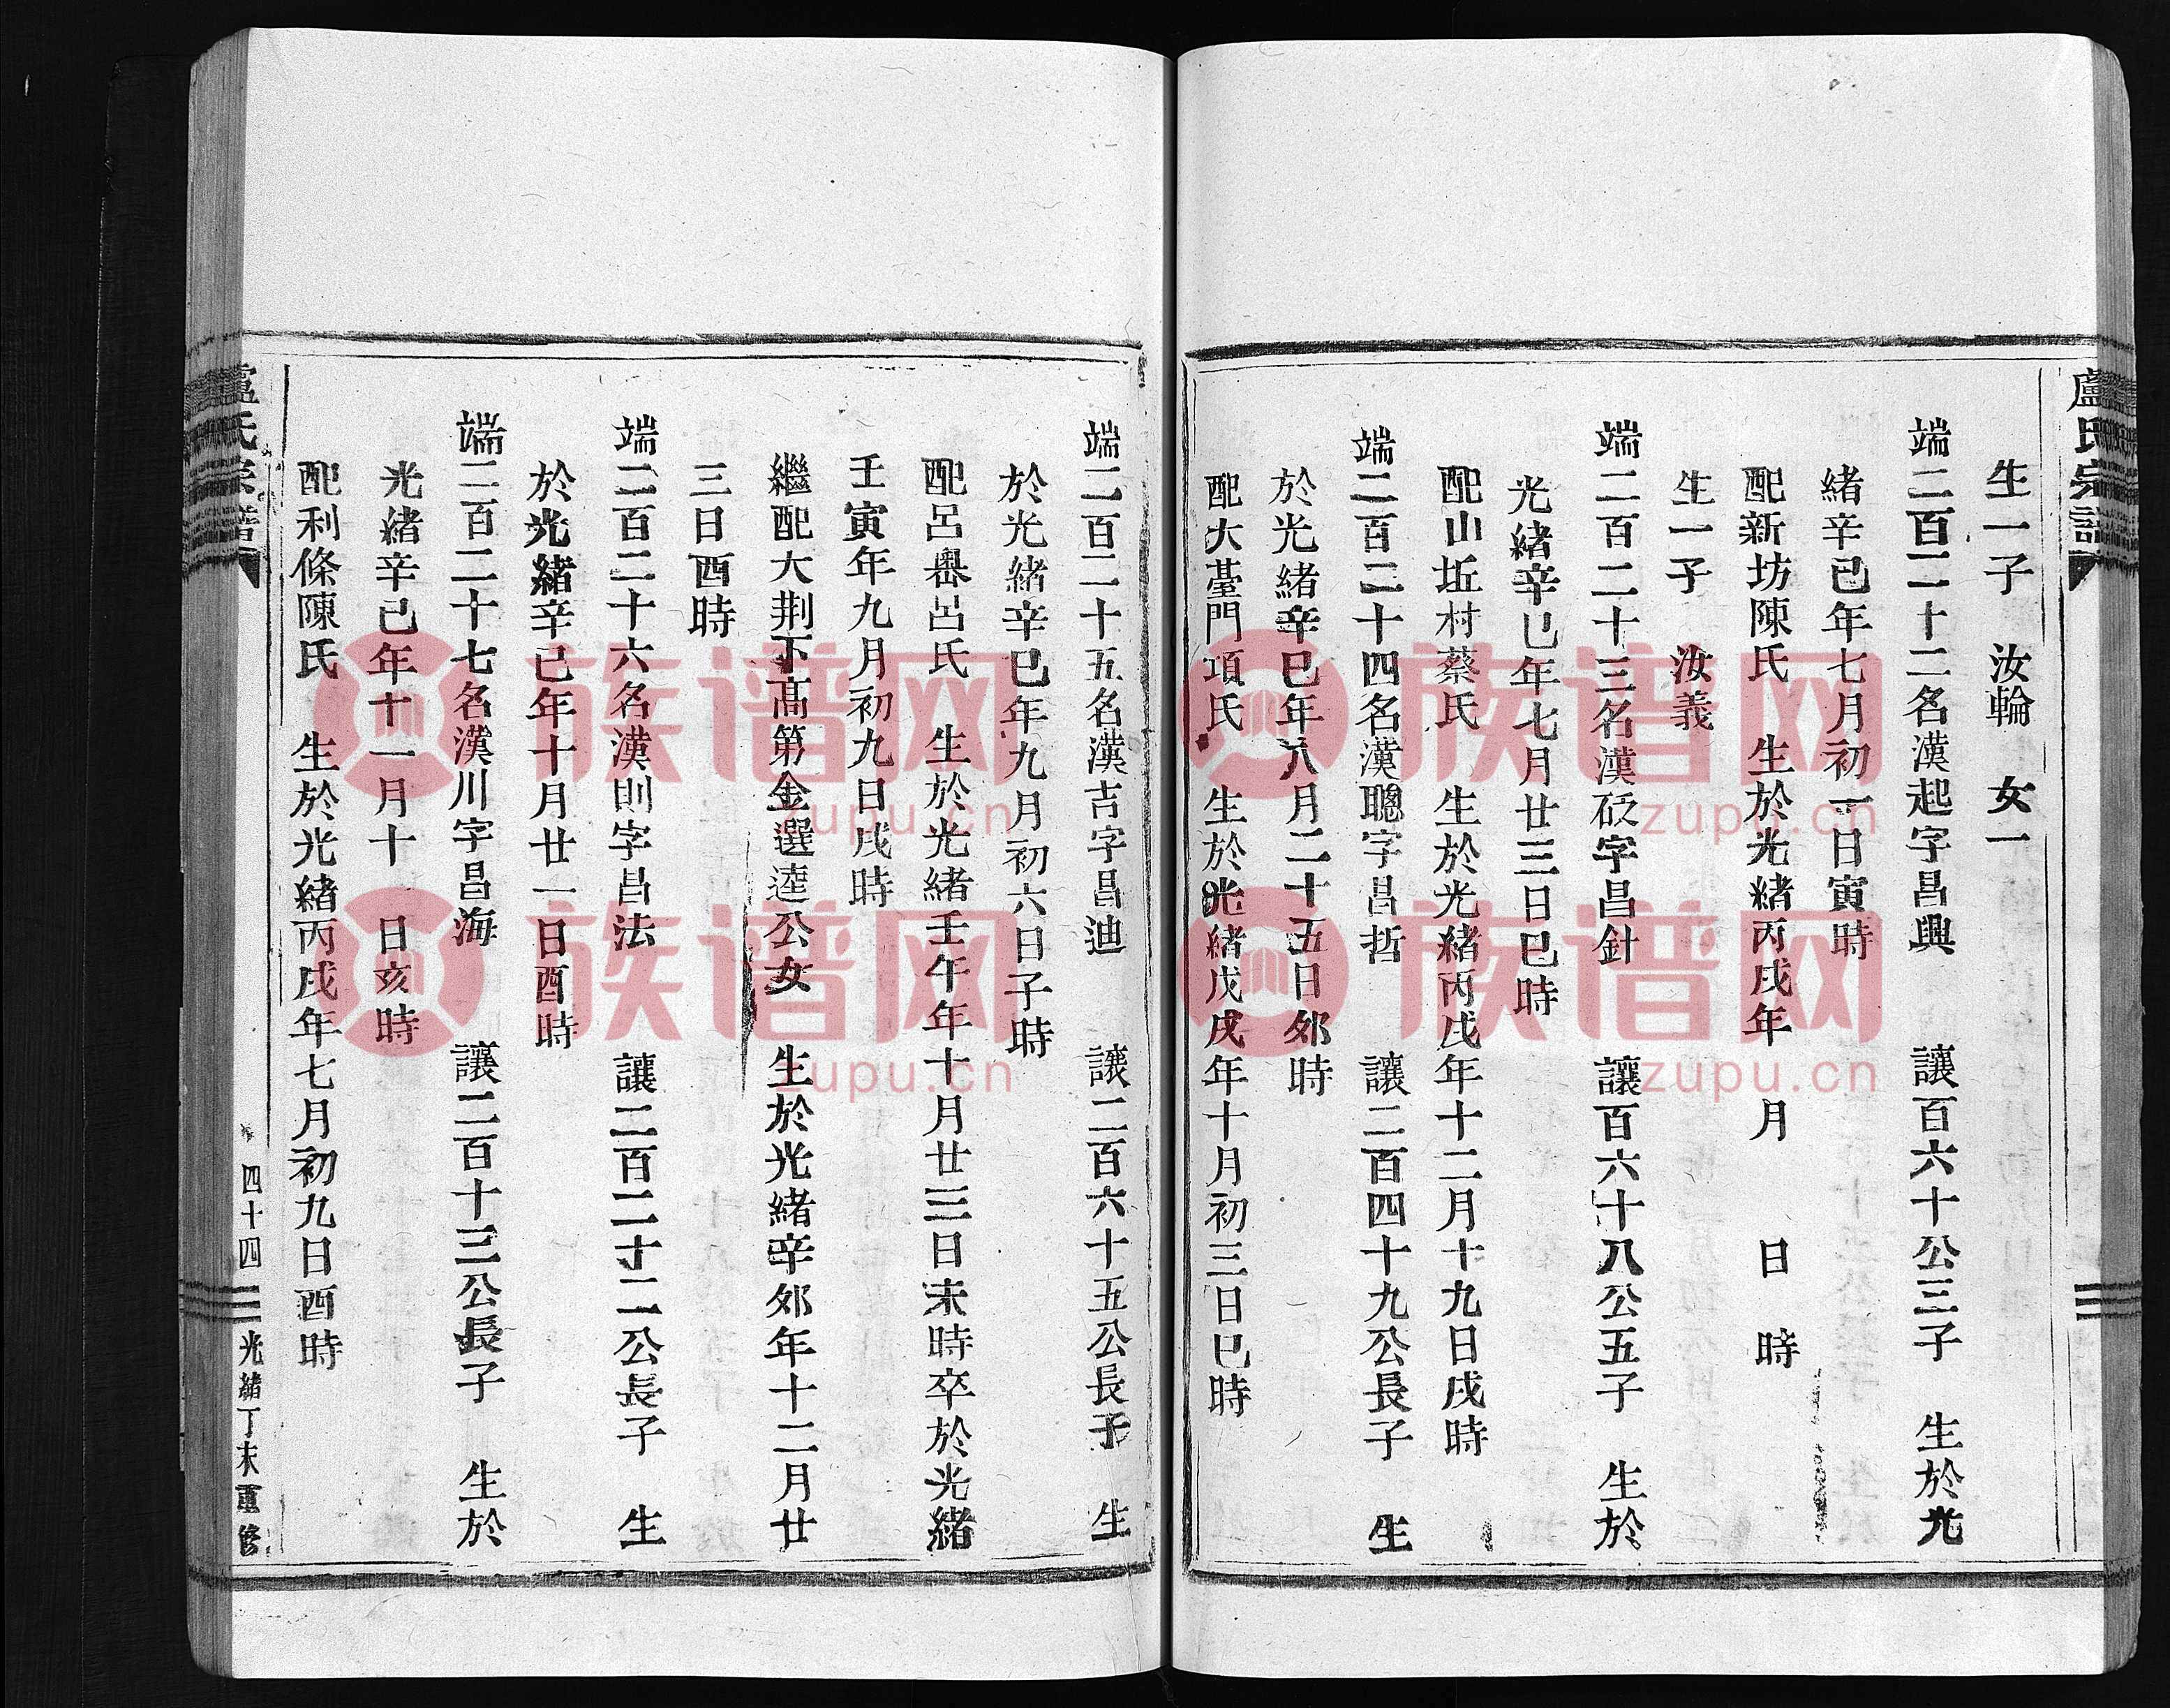 盧氏宗譜
生一子　汝輪　女一
端二百二十二名漢起字昌興　讓百六十公三子　生於光
緒辛巳年七月初一日寅時
配新坊陳氏　生於光緒丙戌年　月　日　時
生一子　汝義
端二百二十三名漢砭字昌針　讓百六十八公五子　生於
光緒辛巳年七月廿三日巳時
配山坵村蔡氏　生於光緒丙戌年十二月十九日戌時
端二百二十四名漢聰字昌哲　讓二百四十九公長子　生
於光緒辛巳年八月二十五日夘時
配大臺門項氏　生於光緒戊戌年十月初三日巳時
端二百二十五名漢吉字昌迪　讓二百六十五公長子　生
於光緒辛巳年九月初六日子時
配呂嶴呂氏　生於光緒壬午年十月廿三日未時卒於光緒
壬寅年九月初九日戌時
繼配大荆下高第金選逵公女　生於光緒辛夘年十二月廿
三日酉時
端二百二十六名漢則字昌法　讓二百二十二公長子　生
於光緒辛巳年十月廿一日酉時
端二百二十七名漢川字昌海　讓二百十三公長子　生於
光緒辛巳年十一月十　日亥時
配利條陳氏　生於光緒丙戌年七月初九日酉時
盧氏宗譜
四十四
光緒丁未重修
族谱网
zupu.cn
族谱网
zupu.cn
族谱网
zupu.cn
族谱网
zupu.cn